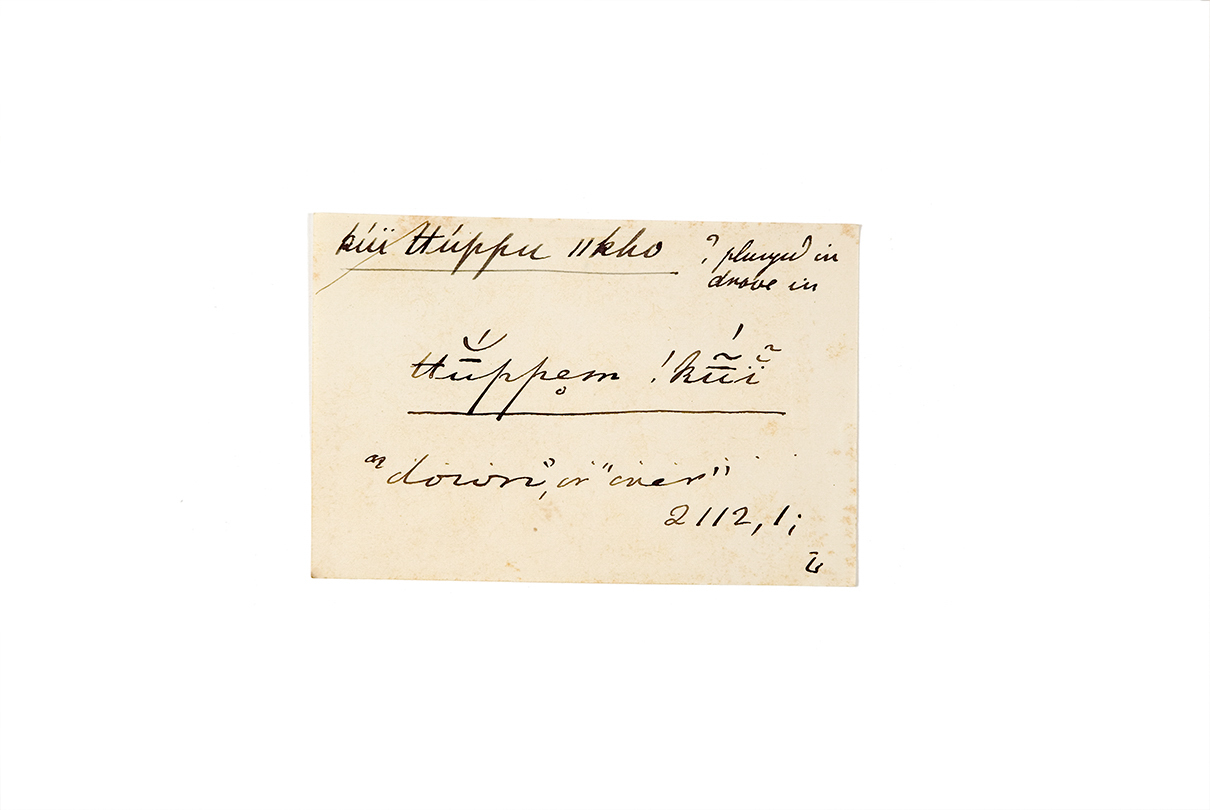 kúï ttúppu ǁkho ? plunged in
drove in
ttŭ́ppe̥m !kũï̆
or "down", or "over"
2112, 1;